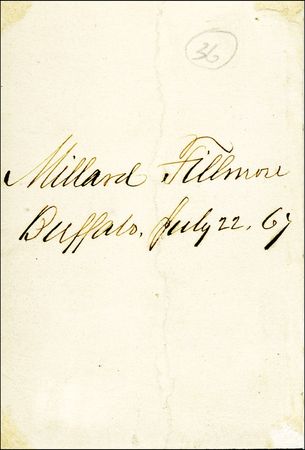 36
Millard Fillmore
Buffalo, July 22. 67